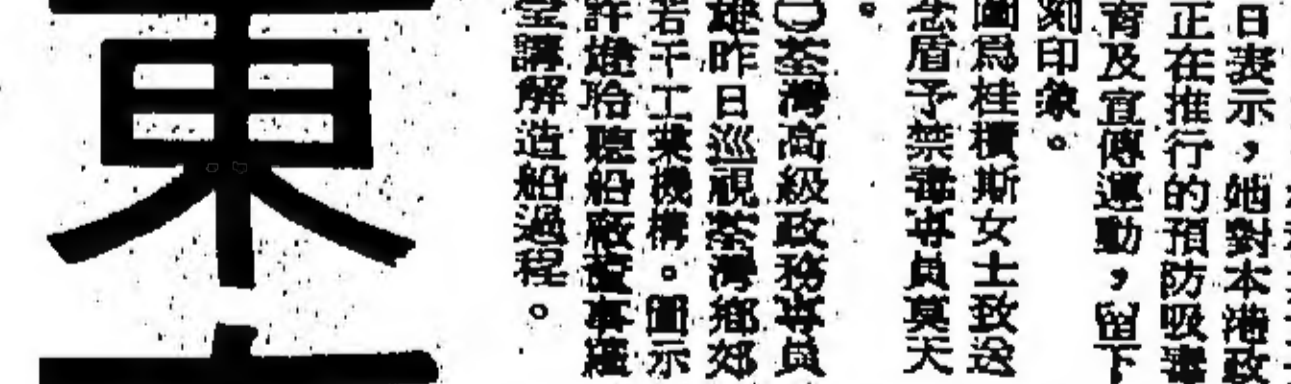 日表示，她對本港政
正在推行的預防吸毒
育及宣傳運動，留下
刻印象。
圖為桂櫝斯女士致送
念盾予禁毒專員莫天
。
荃灣高級政務專員
雄昨日巡視荃灣鄉郊
若干工業機構。圖示
許雄聆聽船廠董事羅
瑩講解造船過程。
東